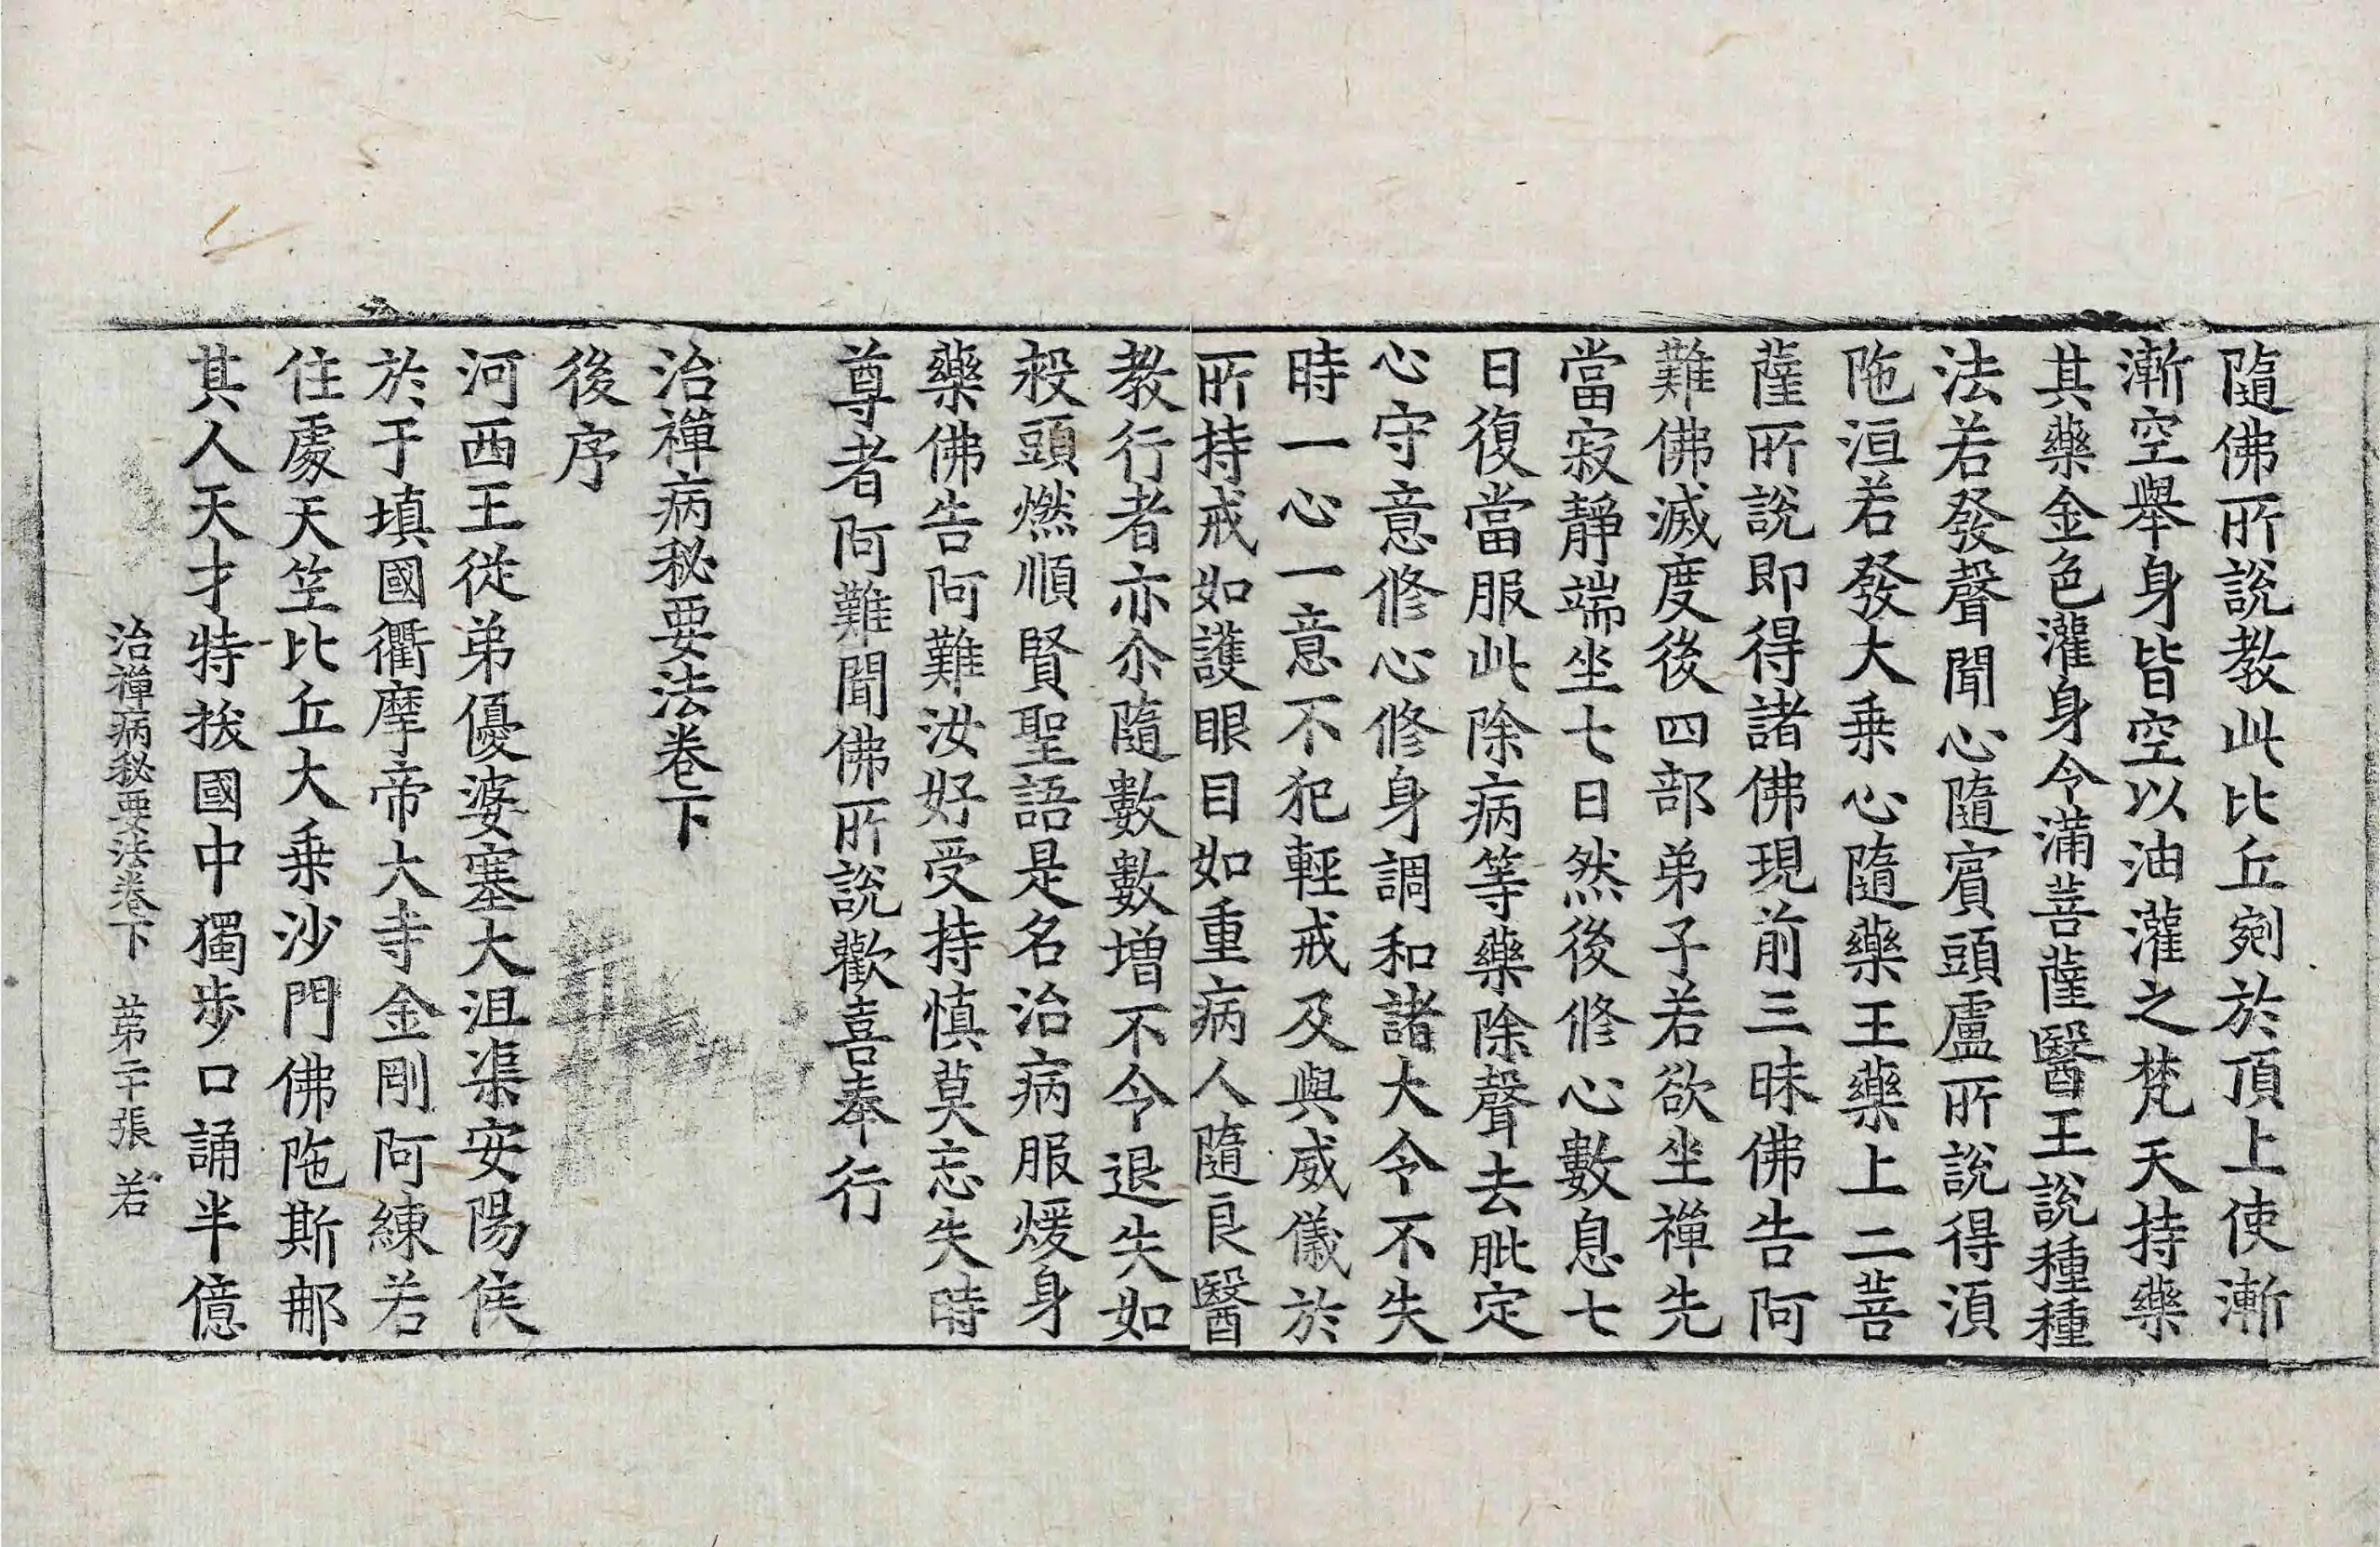 隨佛所說教此比丘剜於頂上使漸
漸空舉身皆空以油灌之梵天持藥
其藥金色灌身令滿菩薩醫王說種種
法若發聲聞心隨賓頭盧所說得湏
陁洹若發大乗心隨藥王藥上二菩
薩所說即得諸佛現前三昧佛告阿
難佛滅度後四部弟子若欲坐禪先
當寂靜端坐七日然後修心數息七
日復當服此除病等藥除聲去肶定
心守意修心修身調和諸大令不失
時一心一意不犯輕戒及與威儀於
所持戒如護眼目如重病人隨良醫
教行者亦尒隨數數增不令退失如
救頭燃順賢聖語是名治病服煖身
藥佛告阿難汝好受持慎莫忘失時
尊者阿難聞佛所說歡喜奉行
治禪病秘要法卷下
後序
河西王從弟優婆塞大沮渠安陽侯
於于填國衢摩帝大寺金剛阿練若
住處天竺比丘大乗沙門佛陁斯那
其人天才特拔國中獨步口誦半億
治禪病秘要法卷下 苐二十張 若